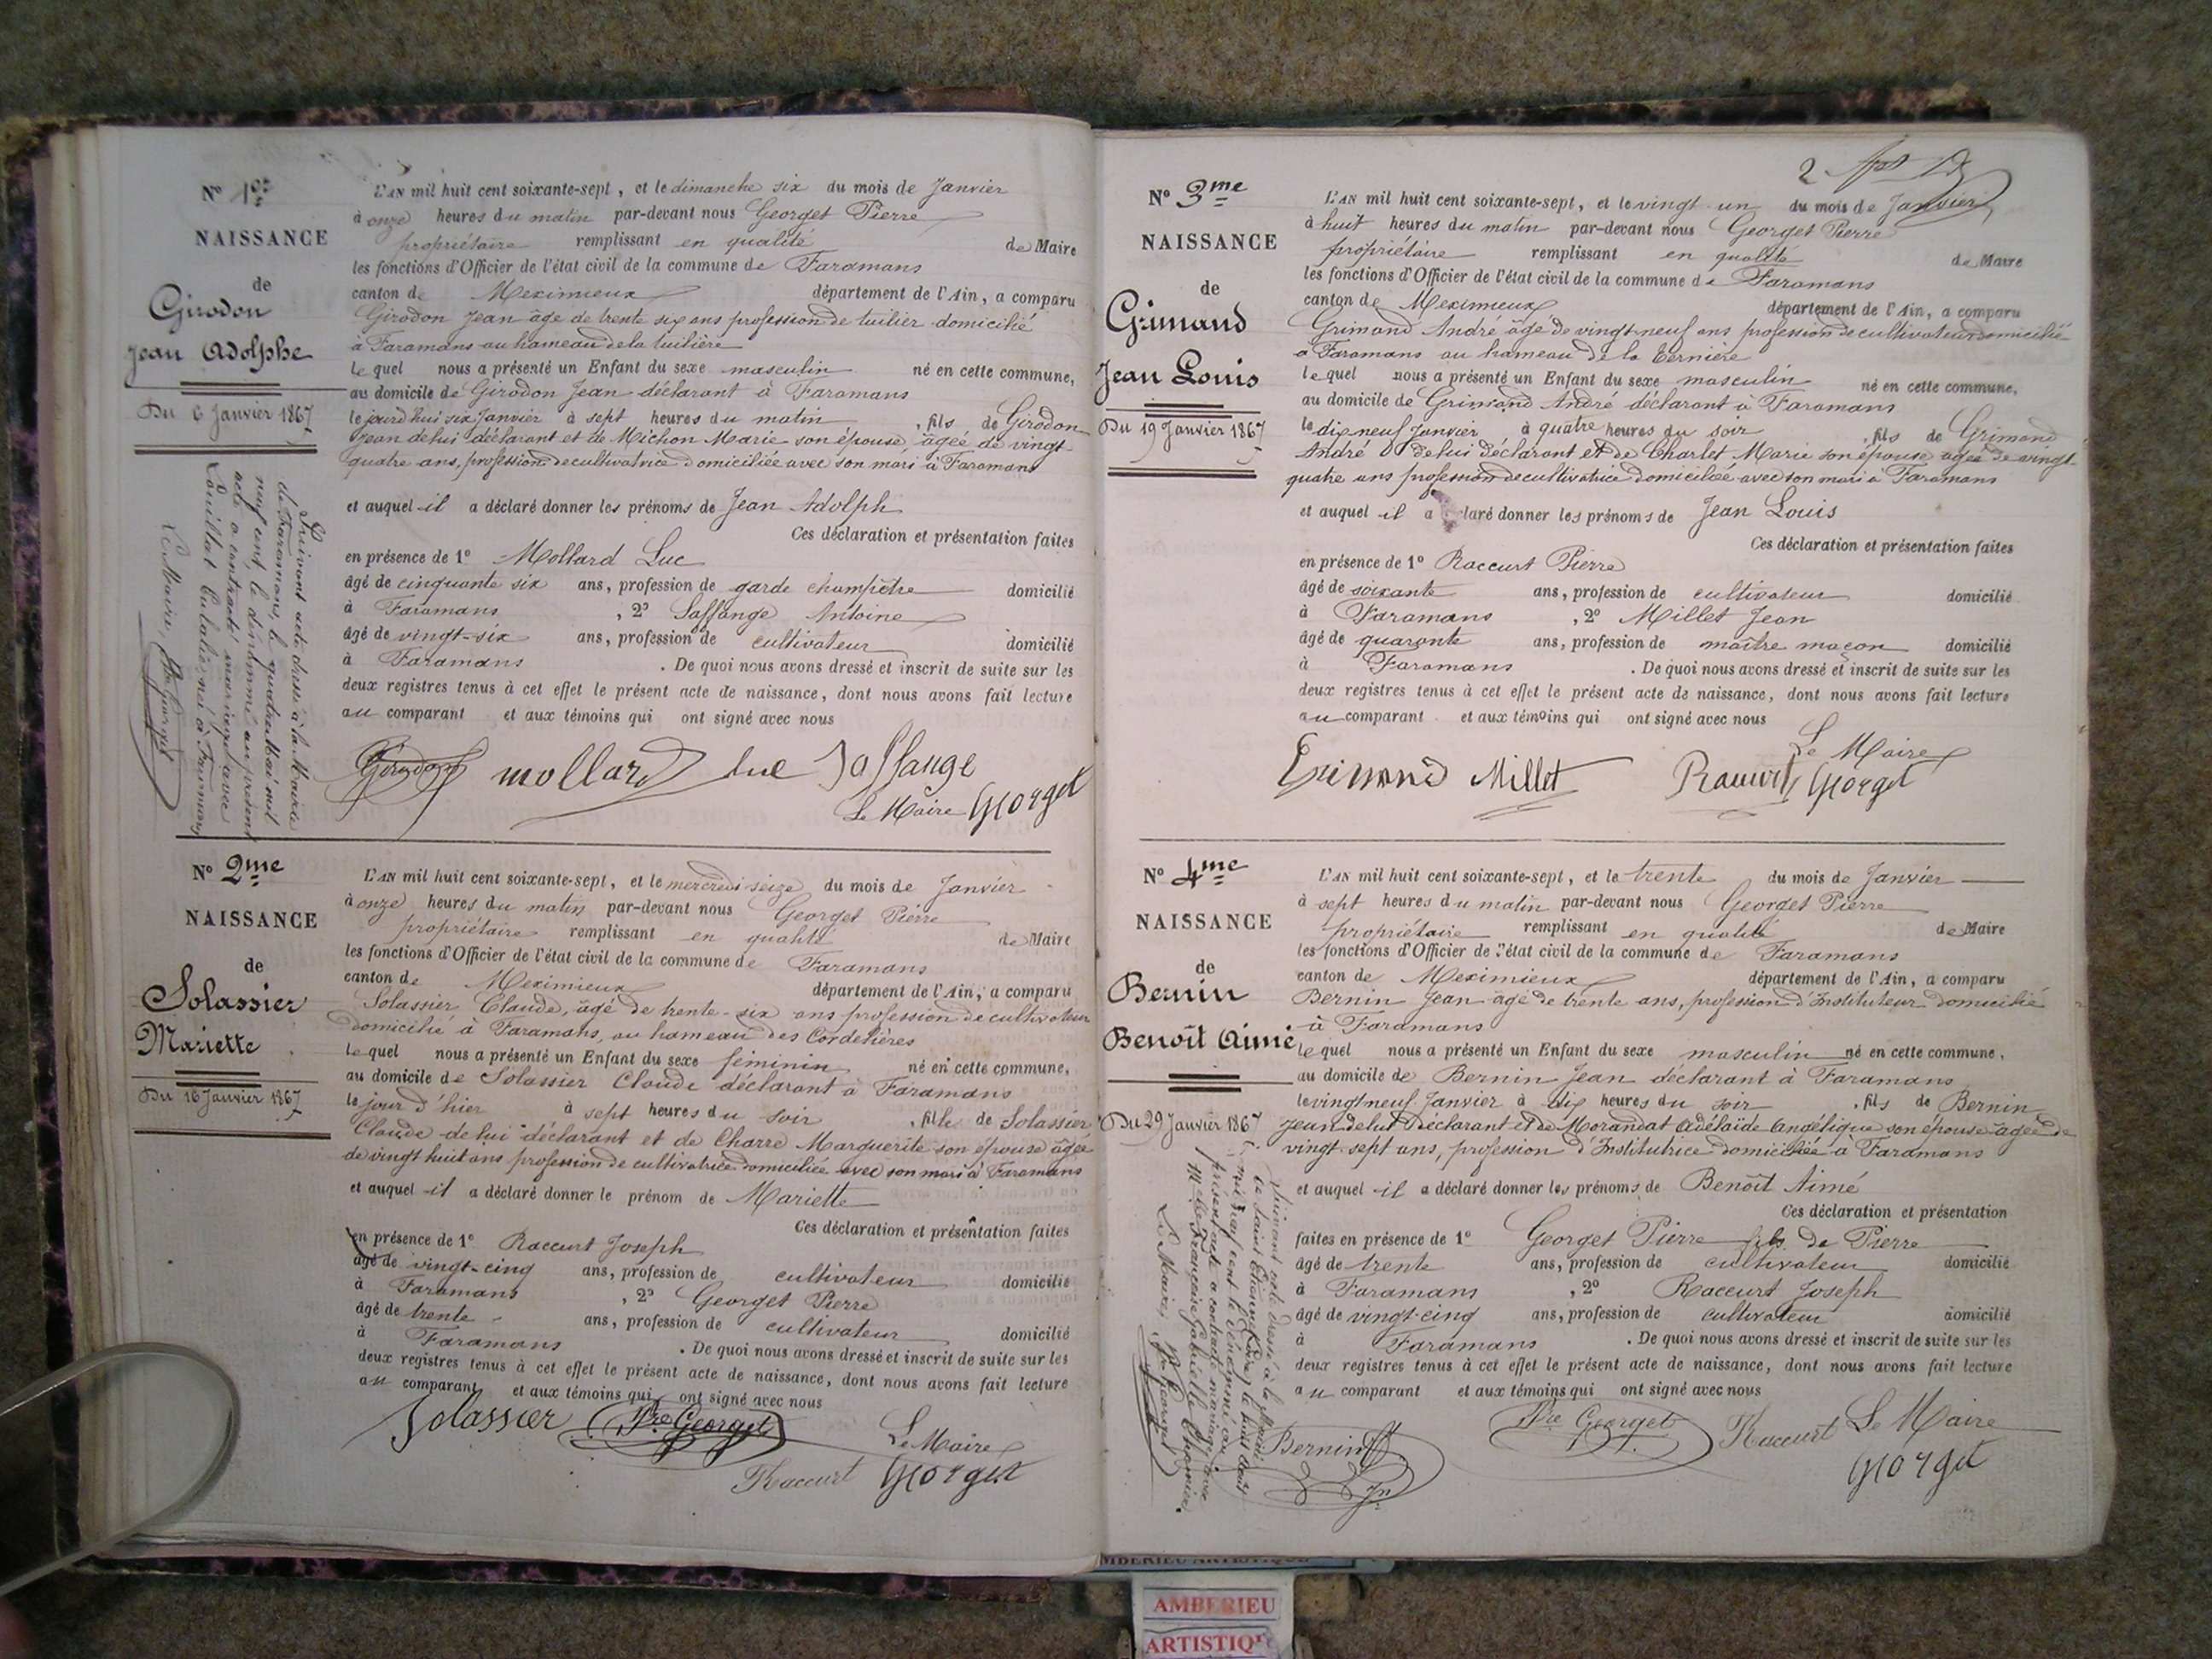 N° 1er
NAISSANCE
de
Girodon
Jean Adolphe
Du 6 Janvier 1867
Suivant acte dressé à la Mairie
de Faramans, le quatre Mai mil
neuf cent, le dénommé au présent
acte a contracté mariage avec
Eulalie né à Faramans
Le Maire, Georget
L'AN mil huit cent soixante-sept, et le dimanche six du mois de Janvier
à onze heures du matin par-devant nous Georget Pierre
propriétaire remplissant en qualité de Maire
les fonctions d'Officier de l'état civil de la commune de Faramans
canton de Meximieux département de l'Ain, a comparu
Girodon Jean âgé de trente six ans profession de tuilier domicilié
à Faramans au hameau de la tuilière
lequel nous a présenté un Enfant du sexe masculin né en cette commune,
au domicile de Girodon Jean déclarant à Faramans
le jourd'hui six Janvier à sept heures du matin, fils de Girodon
Jean de lui déclarant et de Michon Marie son épouse âgée de vingt
quatre ans, profession de cultivatrice domiciliée avec son mari à Faramans
et auquel il a déclaré donner les prénoms de Jean Adolph
Ces déclaration et présentation faites
en présence de 1° Mollard Luc
âgé de cinquante six ans, profession de garde champêtre domicilié
à Faramans, 2° Saffange Antoine
âgé de vingt-six ans, profession de cultivateur domicilié
à Faramans. De quoi nous avons dressé et inscrit de suite sur les
deux registres tenus à cet effet le présent acte de naissance, dont nous avons fait lecture
au comparant et aux témoins qui ont signé avec nous
Girodon mollard luc Saffange
Le Maire Georget
N° 2me
NAISSANCE
de
Solassier
Mariette
Du 16 Janvier 1867
L'AN mil huit cent soixante-sept, et le mercredi seize du mois de Janvier
à onze heures du matin par-devant nous Georget Pierre
propriétaire remplissant en qualité de Maire
les fonctions d'Officier de l'état civil de la commune de Faramans
canton de Meximieux département de l'Ain, a comparu
Solassier Claude, âgé de trente-six ans profession de cultivateur
domicilié à Faramans, au hameau des Cordelières
lequel nous a présenté un Enfant du sexe féminin né en cette commune,
au domicile de Solassier Claude déclarant à Faramans
le jour d'hier à sept heures du soir, fille de Solassier
Claude de lui déclarant et de Charre Marguerite son épouse âgée
de vingt huit ans profession de cultivatrice domiciliée avec son mari à Faramans
et auquel il a déclaré donner le prénom de Mariette
Ces déclaration et présentation faites
en présence de 1° Raccurt Joseph
âgé de vingt-cinq ans, profession de cultivateur domicilié
à Faramans, 2° Georget Pierre
âgé de trente ans, profession de cultivateur domicilié
à Faramans. De quoi nous avons dressé et inscrit de suite sur les
deux registres tenus à cet effet le présent acte de naissance, dont nous avons fait lecture
au comparant et aux témoins qui ont signé avec nous
Solassier Pre Georget
Le Maire
Raccurt Georget
2
N° 3me
NAISSANCE
de
Grimand
Jean Louis
Du 19 Janvier 1867
L'AN mil huit cent soixante-sept, et le vingt un du mois de Janvier
à huit heures du matin par-devant nous Georget Pierre
propriétaire remplissant en qualité de Maire
les fonctions d'Officier de l'état civil de la commune de Faramans
canton de Meximieux département de l'Ain, a comparu
Grimand André âgé de vingt-neuf ans profession de cultivateur domicilié
à Faramans au hameau de la Bernière
lequel nous a présenté un Enfant du sexe masculin né en cette commune,
au domicile de Grimand André déclarant à Faramans
le dix neuf Janvier à quatre heures du soir, fils de Grimand
André de lui déclarant et de Charlet Marie son épouse âgée de vingt-
quatre ans profession de cultivatrice domiciliée avec son mari à Faramans
et auquel il a déclaré donner les prénoms de Jean Louis
Ces déclaration et présentation faites
en présence de 1° Raccurt Pierre
âgé de soixante ans, profession de cultivateur domicilié
à Faramans, 2° Millet Jean
âgé de quarante ans, profession de maître maçon domicilié
à Faramans. De quoi nous avons dressé et inscrit de suite sur les
deux registres tenus à cet effet le présent acte de naissance, dont nous avons fait lecture
au comparant et aux témoins qui ont signé avec nous
Le Maire
Grimand Millet Raccurt Georget
N° 4me
NAISSANCE
de
Bernin
Benoît Aimé
Du 29 Janvier 1867
Suivant acte dressé à la Mairie
de Saint Etienne le huit Août
mil neuf cent le dénommé au
présent acte a contracté mariage avec
Mlle Françoise Gabrielle
Le Maire, Georget
L'AN mil huit cent soixante-sept, et le trente du mois de Janvier
à sept heures du matin par-devant nous Georget Pierre
propriétaire remplissant en qualité de Maire
les fonctions d'Officier de l'état civil de la commune de Faramans
canton de Meximieux département de l'Ain, a comparu
Bernin Jean âgé de trente ans, profession d'Instituteur domicilié
à Faramans
lequel nous a présenté un Enfant du sexe masculin né en cette commune,
au domicile de Bernin Jean déclarant à Faramans
le vingt neuf Janvier à dix heures du soir, fils de Bernin
Jean de lui déclarant et de Morandat Adélaïde Angélique son épouse âgée de
vingt-sept ans, profession d'Institutrice domiciliée à Faramans
et auquel il a déclaré donner les prénoms de Benoît Aimé
Ces déclaration et présentation
faites en présence de 1° Georget Pierre fils de Pierre
âgé de trente ans, profession de cultivateur domicilié
à Faramans, 2° Raccurt Joseph
âgé de vingt-cinq ans, profession de cultivateur domicilié
à Faramans. De quoi nous avons dressé et inscrit de suite sur les
deux registres tenus à cet effet le présent acte de naissance, dont nous avons fait lecture
au comparant et aux témoins qui ont signé avec nous
Bernin Pre Georget Raccurt Le Maire
Georget
AMBERIEU ARTISTIQUE
AMBERIEU
ARTISTIQU